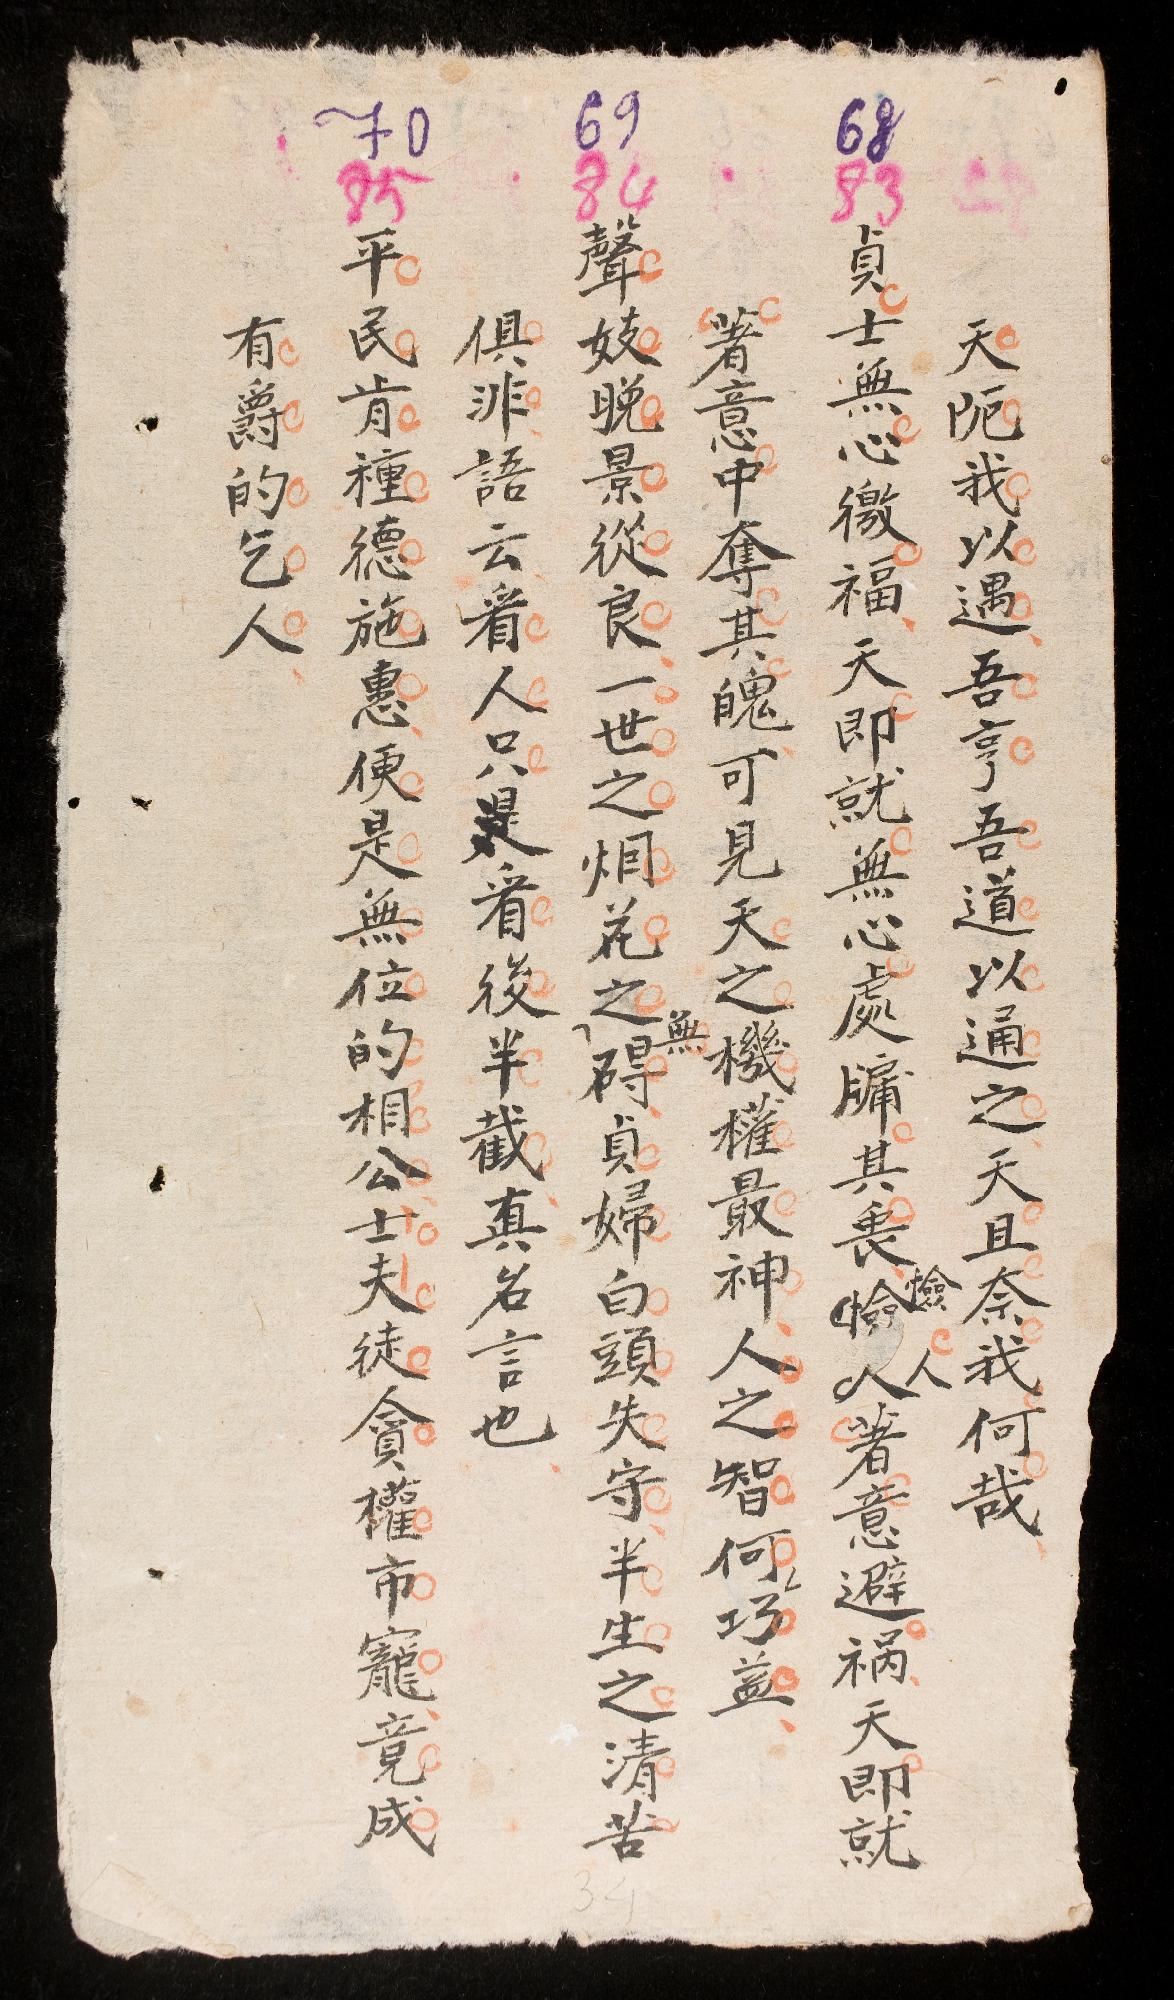 天阨我以遇吾亨吾道以通之天且奈我何哉
68
83
貞士無心徼福天即就無心處牗其衷憸人著意避禍天即就
憸人
著意中奪其魄可見天之機權最神人之智何巧益
69
84
聲妓晚景從良一世之烟花之碍貞婦白頭失守半生之清苦
無
俱非語云看人只是看後半截真名言也
70
85
平民肯種德施惠便是無位的相公士夫徒貪權市寵竟成
有爵的乞人
34